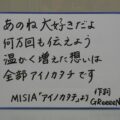 あのね 大好きだよ
何万回も 伝えよう
温かく増えた想いは
全部アイノカタチです
MISIA"アイノカタチ"より 作詞
GReeeeN